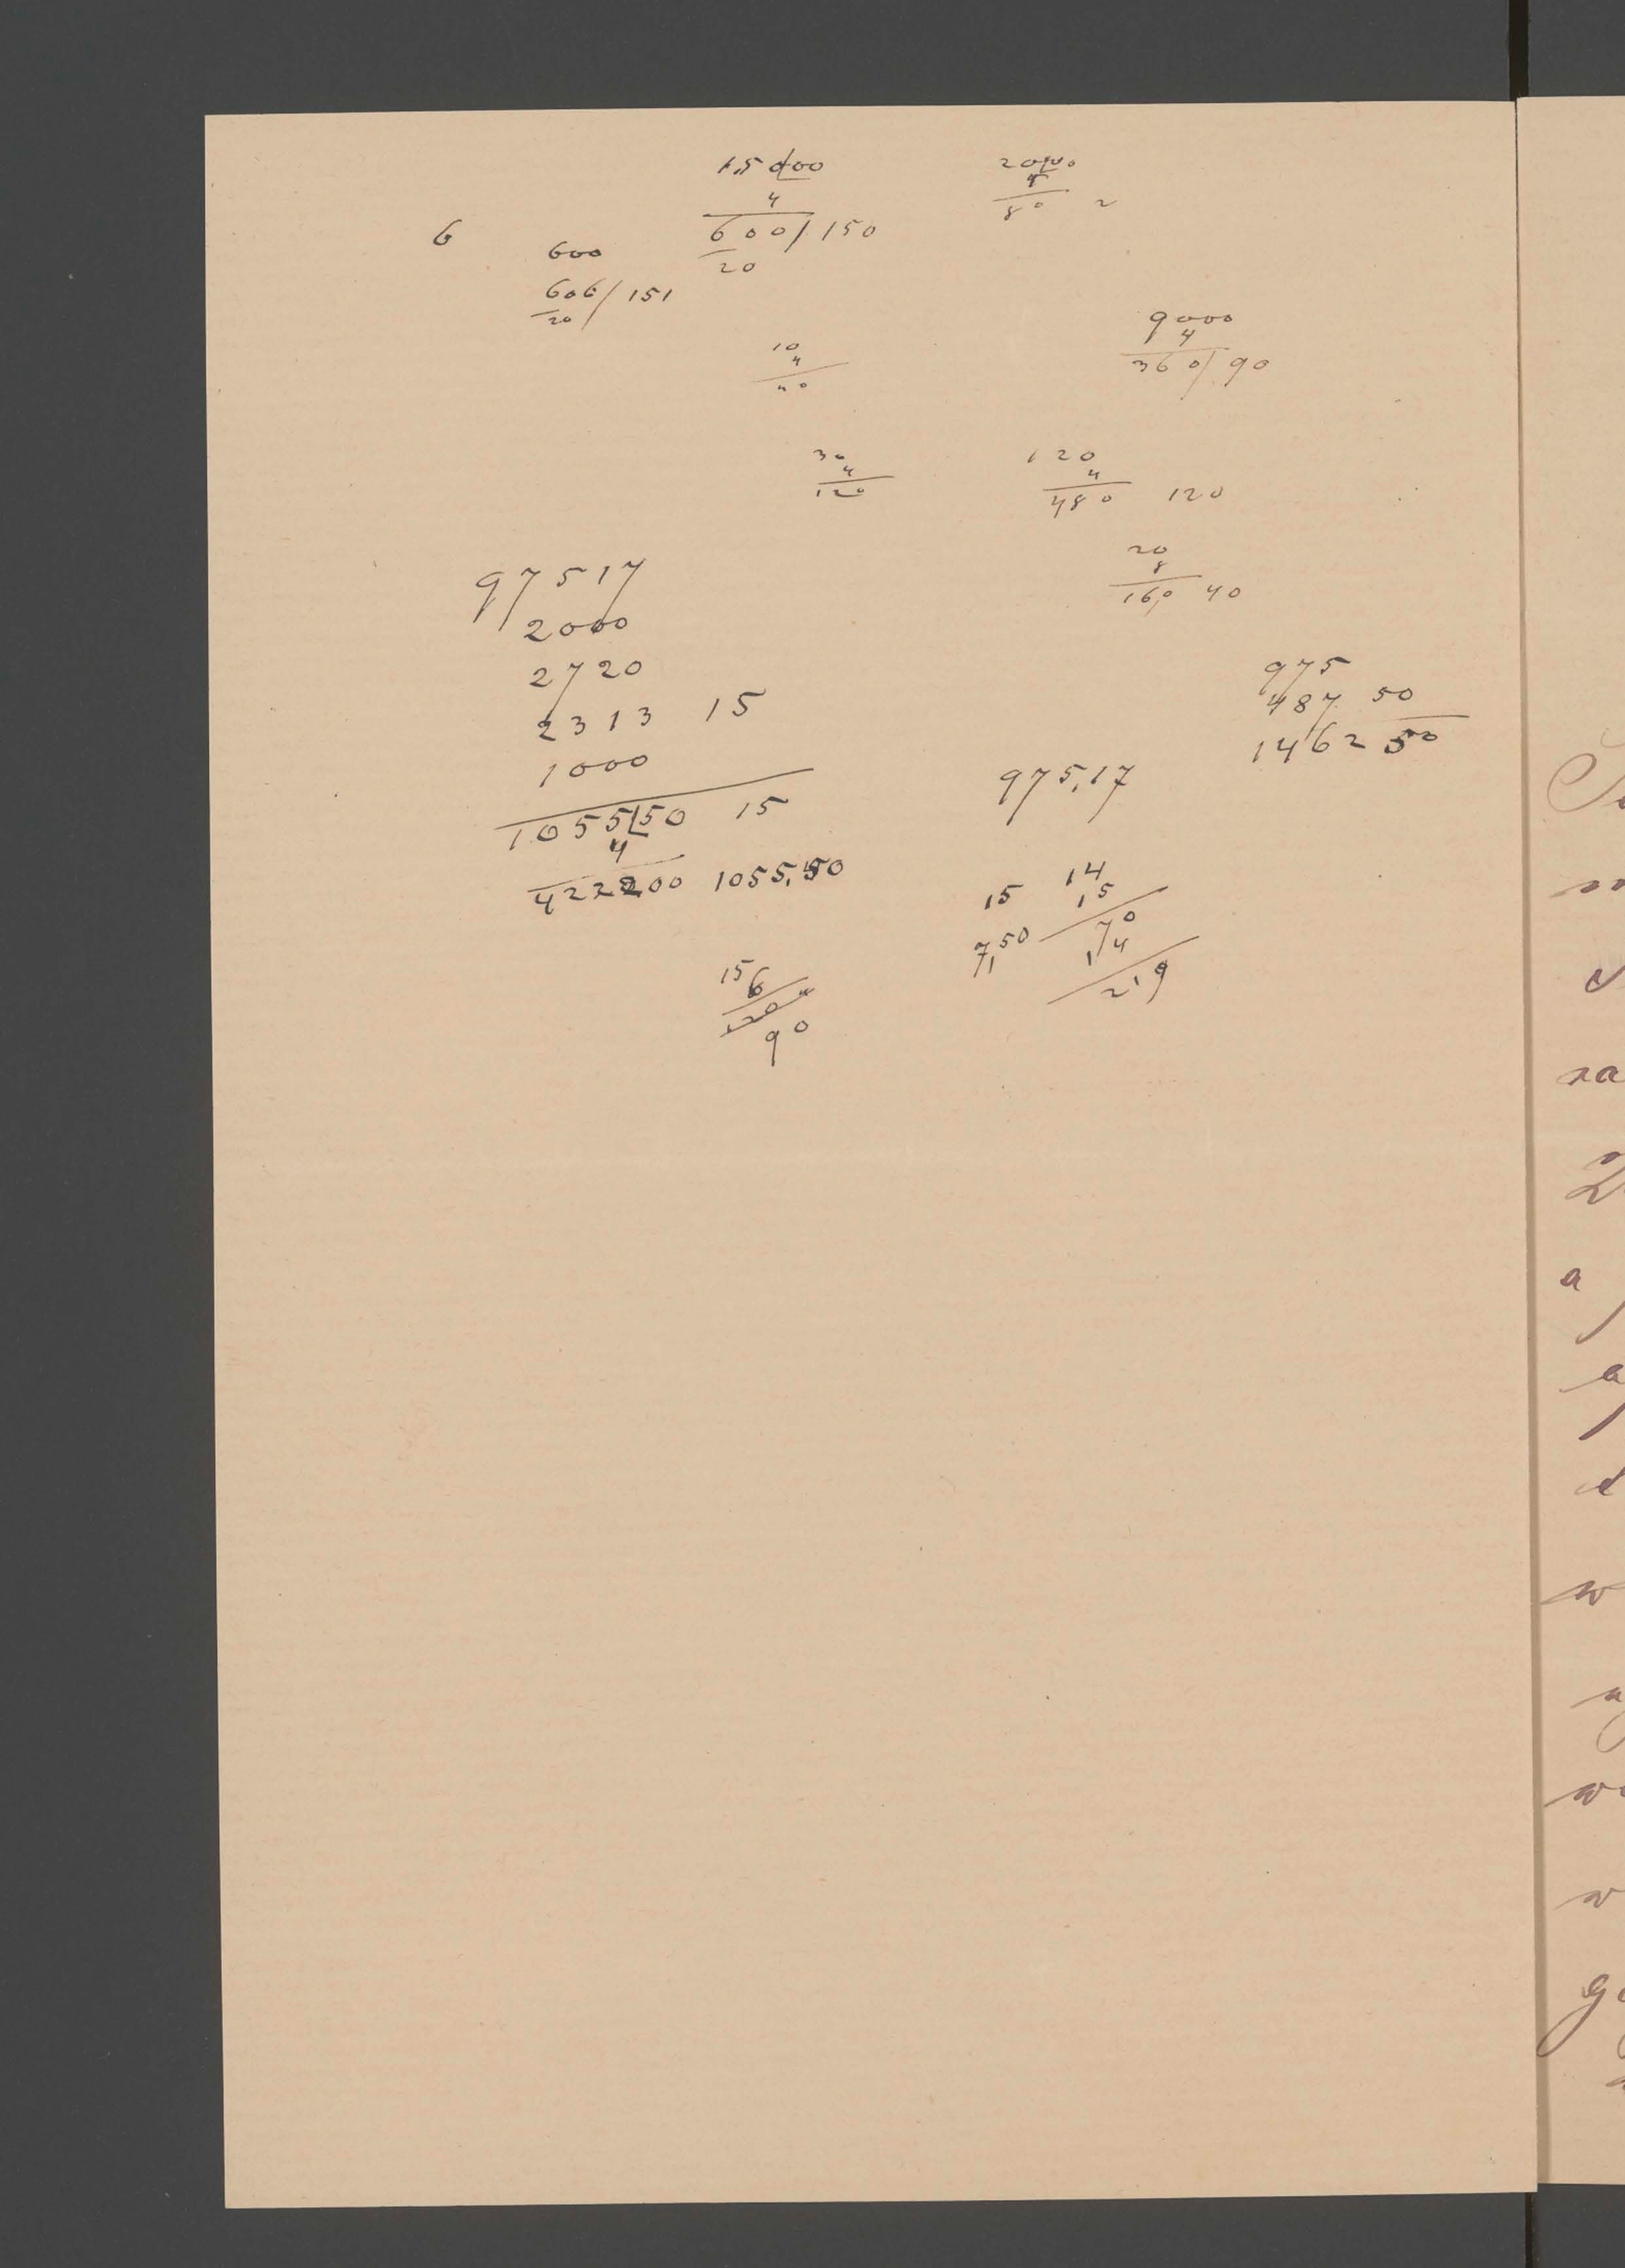 15000
4
600/150
20
2000
4
80 2
6
600
606/151
20
10
4
40
9000
4
360/90
30
4
120
120
4
480 120
20
8
160 40
97517
2000
2720
2313 15
1000
105550 15
4
422200 1055,50
975
487 50
1462 50
975,17
15
7,50
14
15
70
14
219
15
6
90